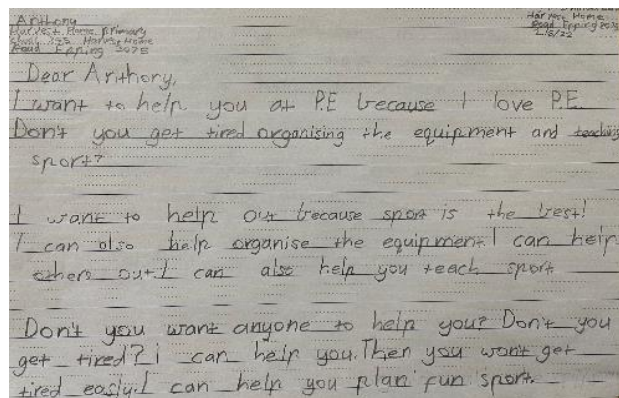 Anthony
Harvest Home Primary
Harvest Home
Road Epping 3076
Harvest Home
Road Epping
2/8/22
Dear Anthony,
I want to help you at P.E because I love P.E.
Don't you get tired organising the equipment and teaching
sport?
I want to help out because sport is the best!
I can also help organise the equipment. I can help
others out. I can also help you teach sport
Don't you want anyone to help you? Don't you
get tired? i can help you. Then you wont get
tired easly. I can help you plan fun sport